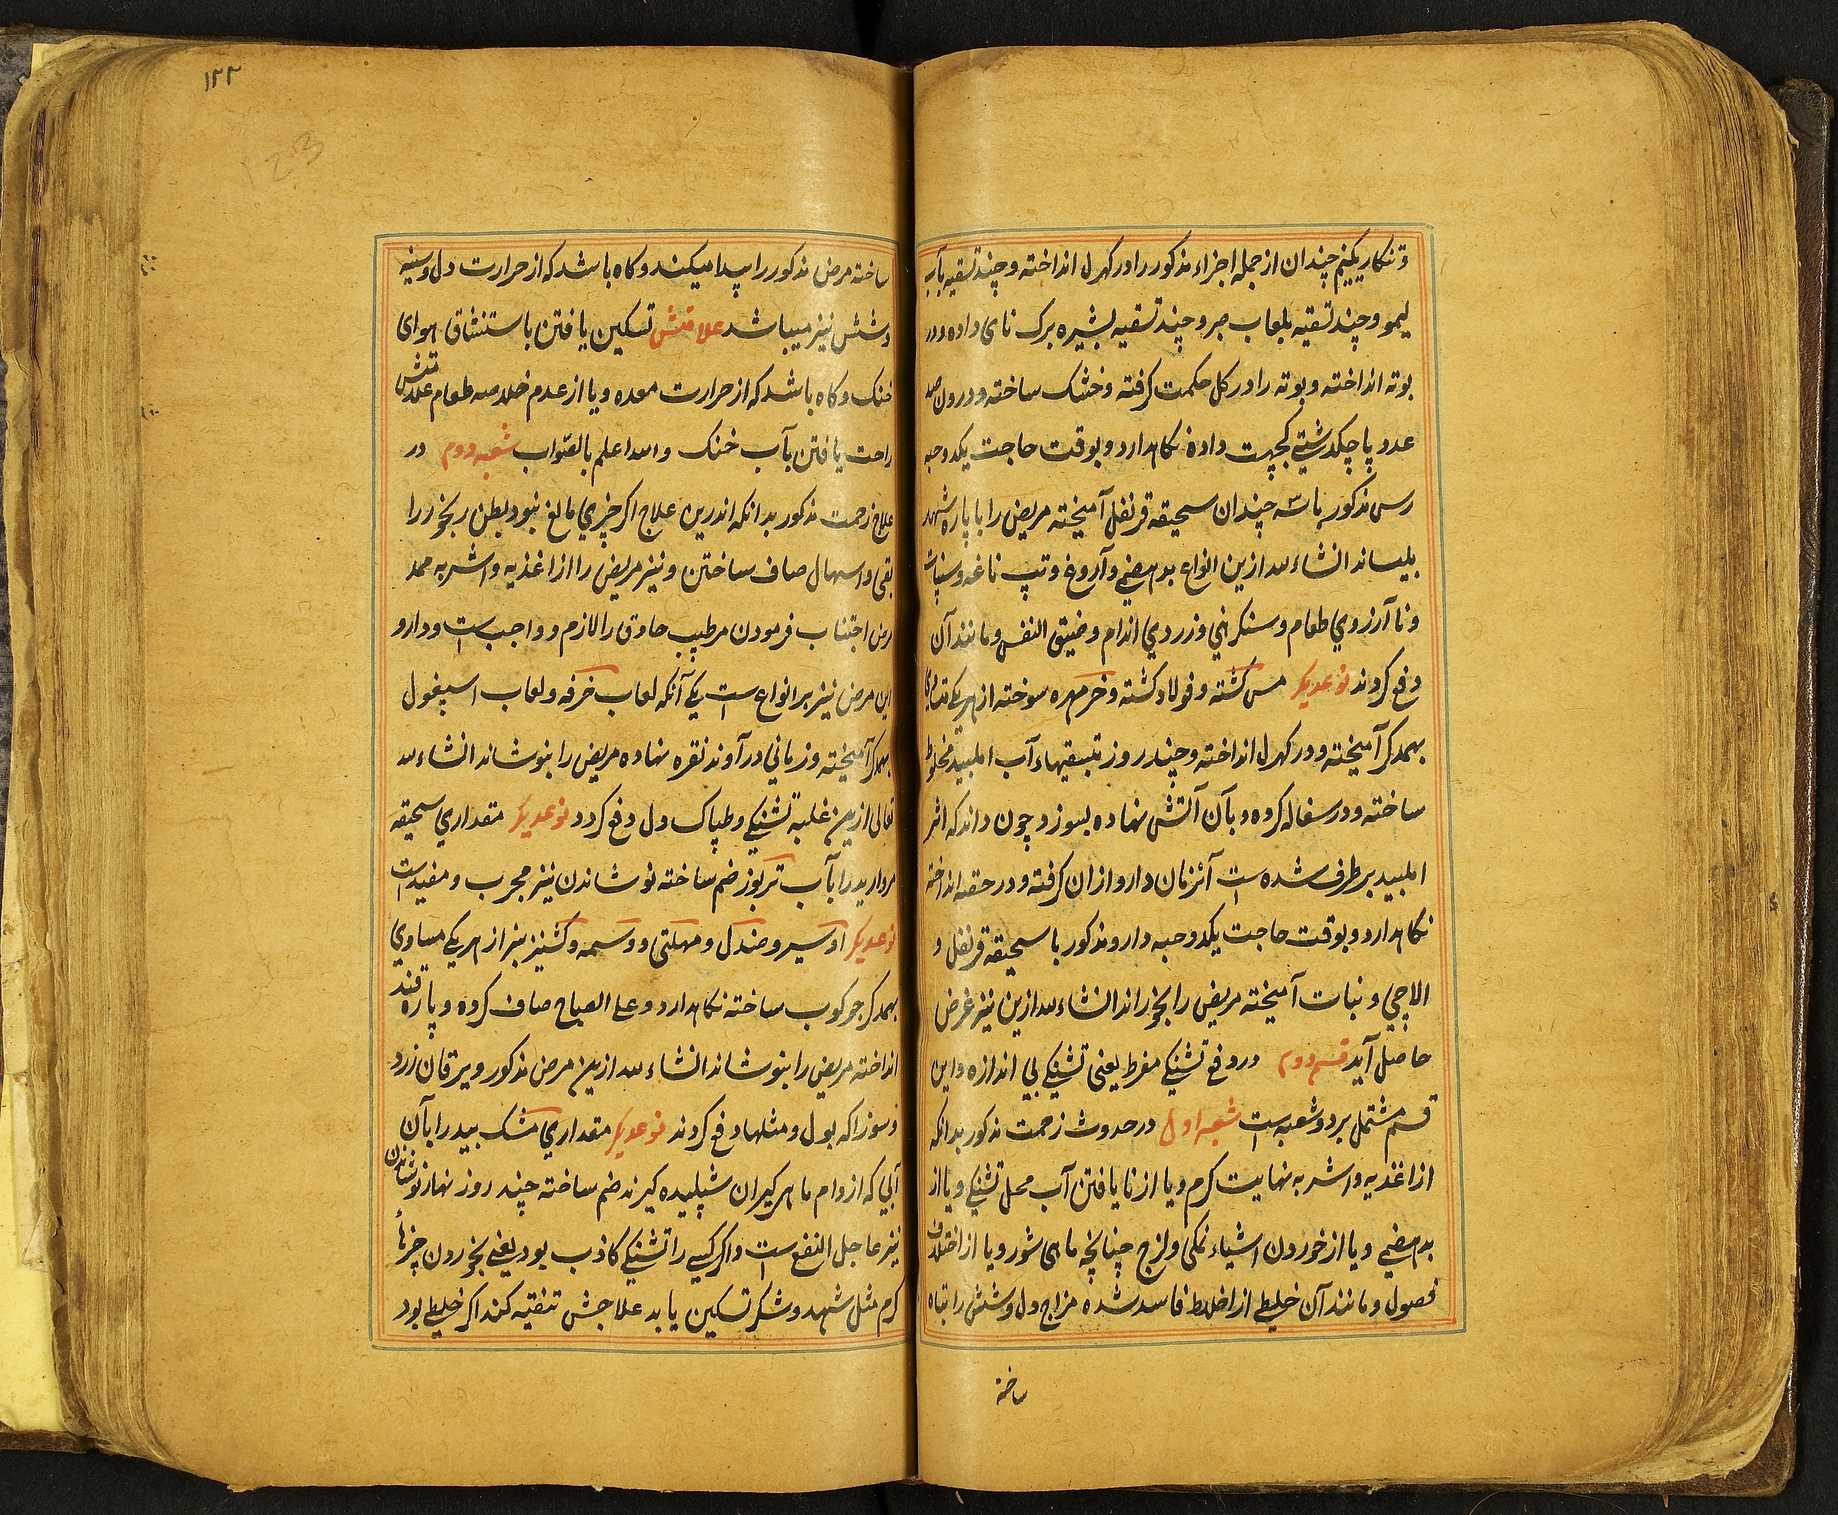 و تنکار یکنیم چندان از جمله اجزاء مذکور را در کهرل انداخته و چند تسقیه بآب
لیمو و چند تسقیه بلعاب صبر و چند تسقیه بشیره برک نای داده و در
بوته انداخته و بوته را در کل حکمت کرفته و خشک ساخته و درون صد
عدد پاچکدشتی کجپت داده نکاهدارد و بوقت حاجت یکدو حبه
رس مذکور با سه چندان سحیقه قرنفل آمیخته مریض را با پاره شهد
بلیساند انشاءلله ازین انواع بدهضمی و آروغ و تپ ناغه و سنپات
و نا آرزوي طعام و سنکرهني و زردي اندام و ضیق النفس و مانند آن
دفع کردند نوعدیکر مس کشته و فولاد کشته و خرمهره سوخته از هریکے
بهمدکر آمیخته و در کهرل انداخته و چند روز بتسقیهاء آب املبید مخلوط
ساخته و در سفاله کرده و بآن آتش نهاده بسوزد چون داند که اثر
املبید برطرف شده است آنزمان دارو ازان کرفته و در حقه انداخته
نکاهدارد و بوقت حاجت یکدو حبه دارو مذکور با سحیقه قرنفل و
الاچي و نبات آمیخته مریض را بخوراند انشاءلله ازین نیز غرض
حاصل آید قسم دوم در دفع تشنکے مفرط یعنی تشنکے بی اندازه و این
قسم مشتمل بر دو شعبه است شعبه اول در حدوث زحمت مذکور بدانکه
از اغذیه و اشربه نهایت کرم و یا از نا یافتن آب محل تشنکے و یا از
بدهضمی و یا از خوردن اشیاء نمکی و لزج چنانچه ماهی شور و یا از اختلاف
فصول و مانند آن خلیطے از اخلاط فاسد شده مزاج دل و شش را تباه
ساخته
۱۲۳
123
ساخته مرض مذکور را پیدا میکند و کاه باشد که از حرارت دل و سینه
و شش نیز میباشد علامتش تسکین یافتن باستنشاق هوای
خنک و کاه باشد که از حرارت معده و یا از عدم خلاصه طعام علامتش
راحت یافتن بآب خنک و الله اعلم بالصواب شعبه دوم در
علاج زحمت مذکور بدانکه اندرین علاج اکر چیزي مانع نبود بطن رنجور را
بقی و اسهال صاف ساختن و نیز مریض را از اغذیه و اشربه ممد
مرض اجتناب فرمودن مر طبیب حاذق را لازم و واجب است و دارو
این مرض نیز بر انواع است یکے آنکه لعاب خرفه و لعاب اسپغول
بهمدکر آمیخته و زماني در آوند نقره نهاده مریض را بنوشاند انشاءلله
تعالی ازین غلبه تشنکے و طپاک دل دفع کردد نوعدیکر مقداري سحیقه
مروارید را بآب تربوز ضم ساخته نوشاندن نیز مجرب و مفید است
نوعدیکر اوسیر و صندل و مهلتی و وسمه و کشنیز بنز از هریکے مساوي
بهمدکر جوکوب ساخته نکاهدارد و علے الصباح صاف کرده و پاره قند
انداخته مریض را بنوشاند انشاءلله ازین مرض مذکور و یرقان زرد
و سوزاکه بول و مثلها دفع کردند نوعدیکر مقداري مشک بید را بآن
آبي که از دام ماهرکیران شپلیده کیرند ضم ساخته چند روز نهار نوشاندن
نیز عاجل النفع است و اکر کسے را تشنکے کاذب بود یعنے بخوردن چیزهاء
کرم مثل شهد و شکر تسکین یابد علاجش تنقیه کند اکر خلیطے بود